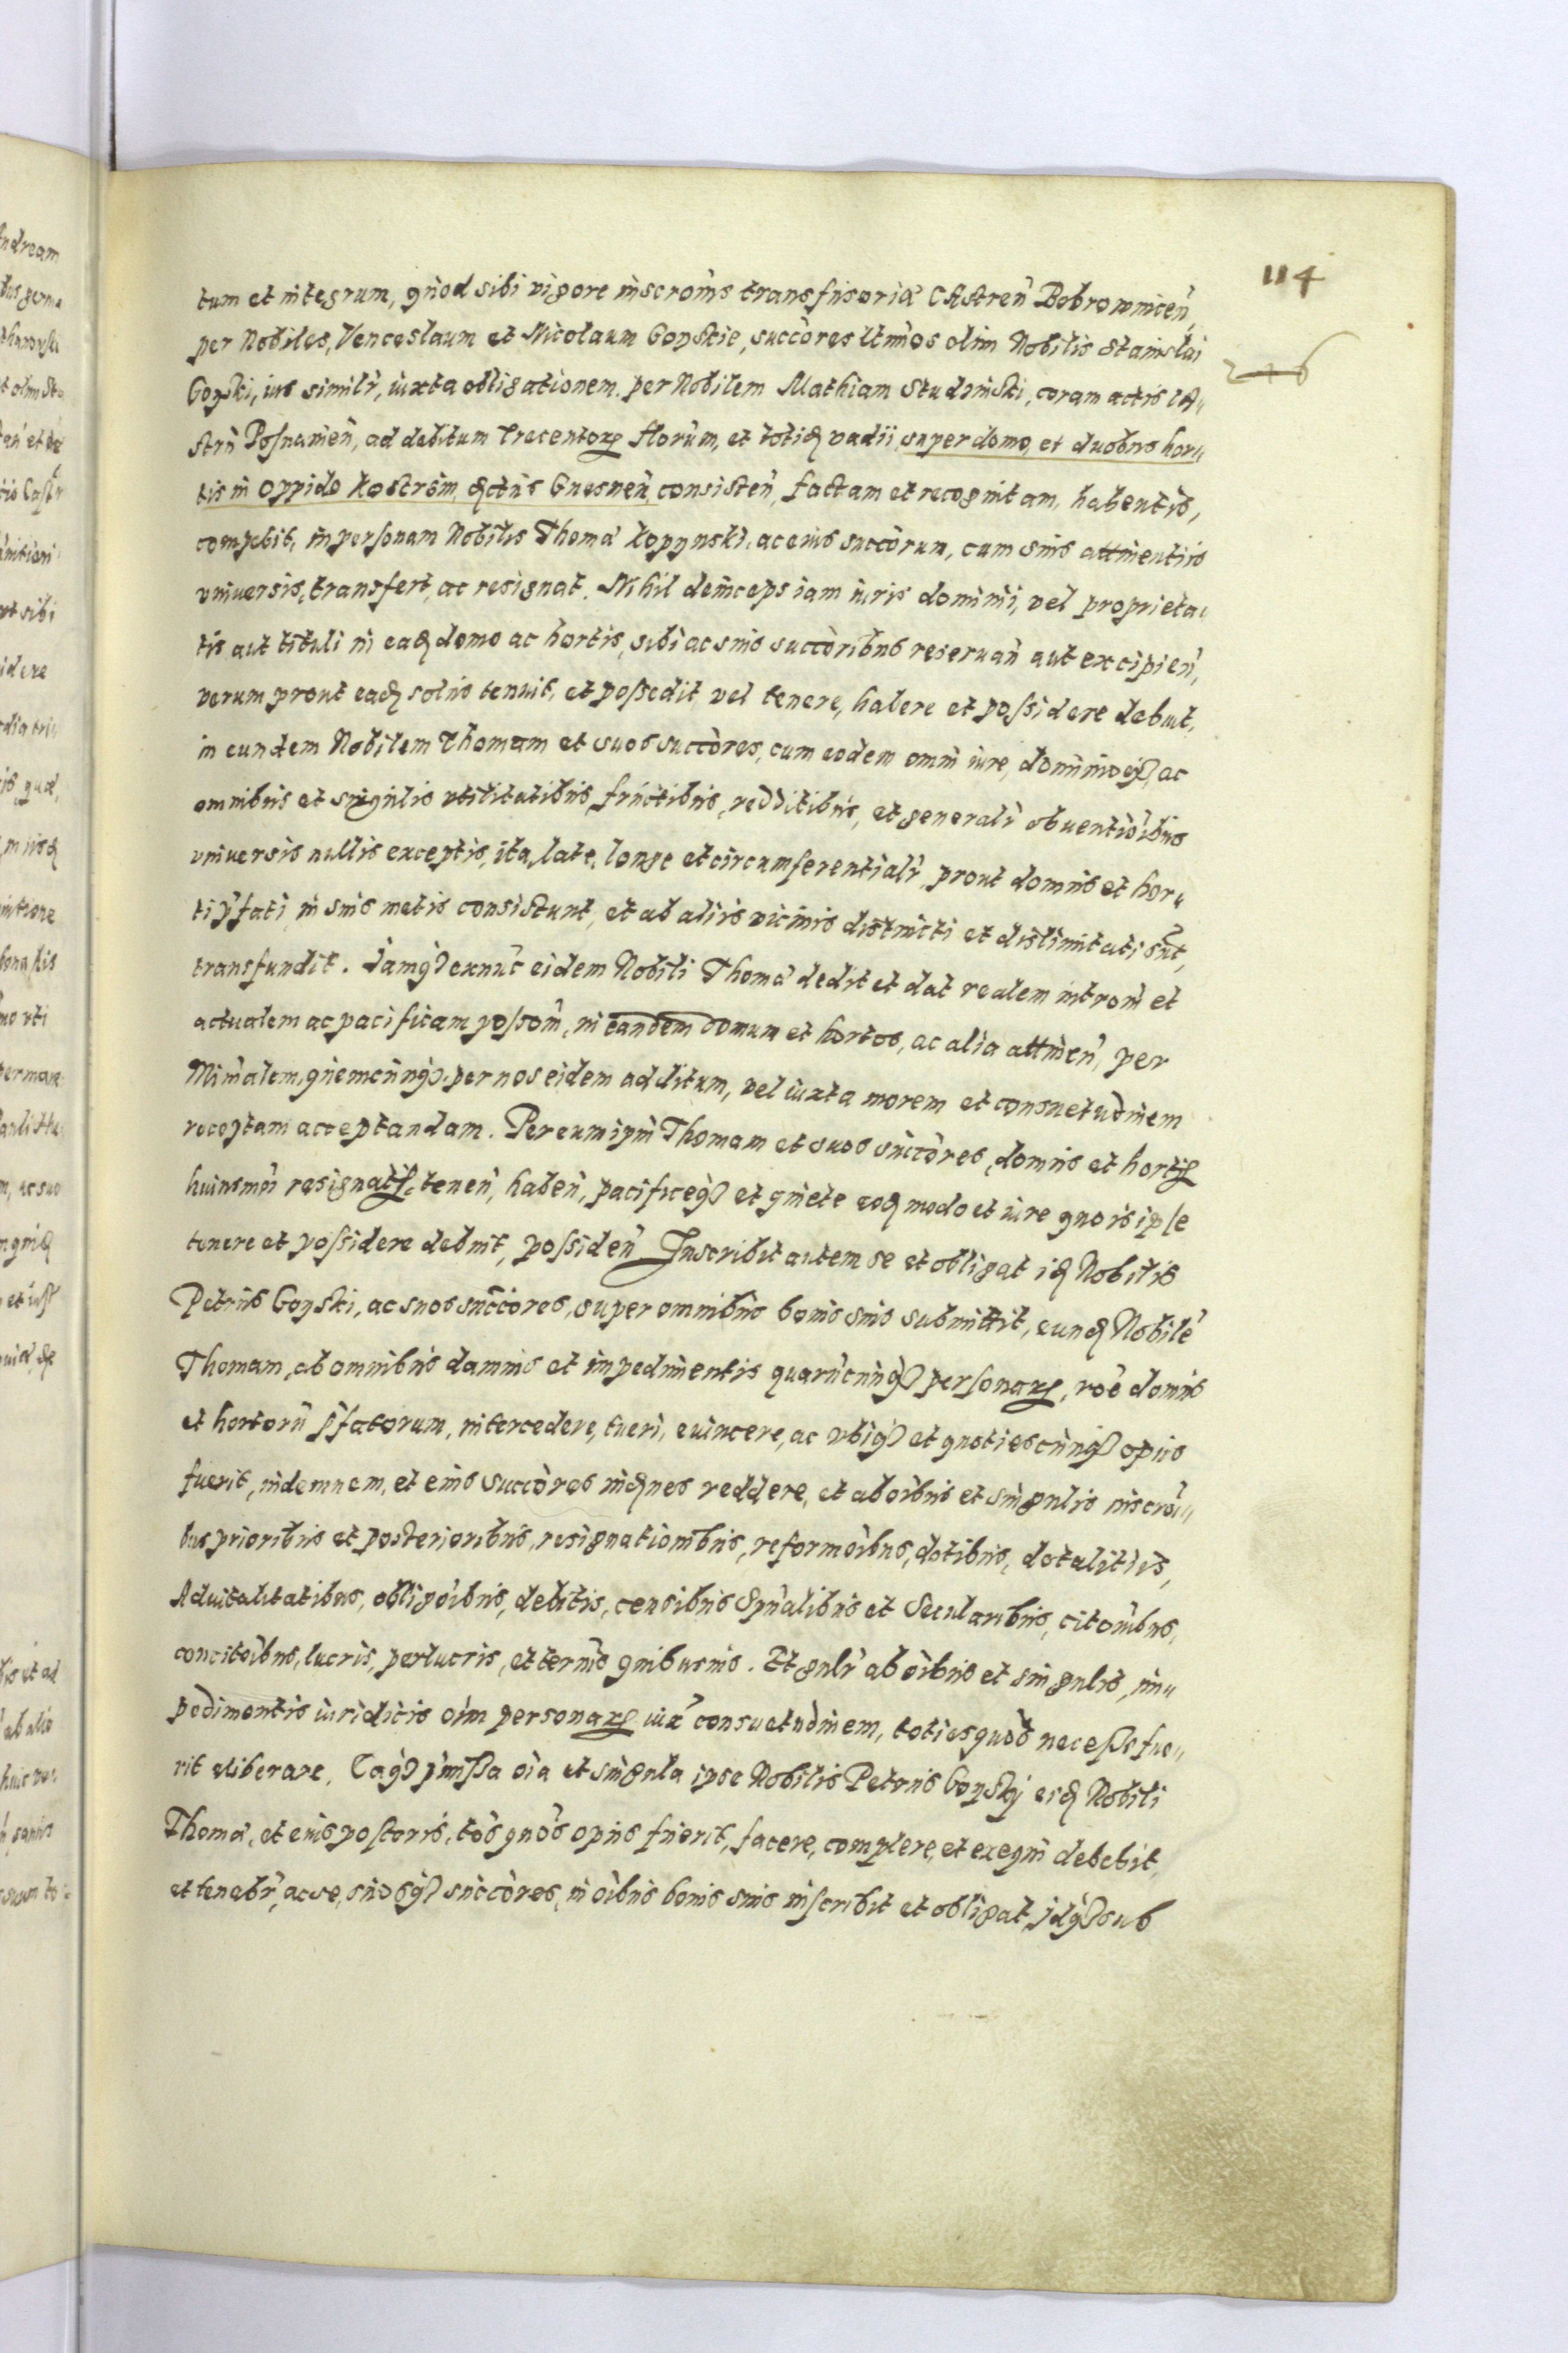 114
tum et integrum, quod sibi vigore inscrōīs transfusoriæ Castreñ Bobrowniceñ,
per Nobiles, Venceslaum et Nicolaum Gorskie, succōres ltīmos olim Nobilis Stanislai
Gorski, ius similr̄, iuxta obligationem per Nobilem Mathiam Studzinski, coram actis Ca„
strñ Posnanieñ, ad debitum Trecentorꝝ florūm, et totiđ vadii, super domo, et duobus hor„
tis in oppido Kostrzin, đctus Gnesneñ, consisteñ, factam et recognitam, habentis,
competit, in personam Nobilis Thomæ Kopynski, ac eius succorum, cum suis attinentiis
vniversis, transfert, ac resignat. Nihil deinceps iam iuris dominii, vel proprieta„
tis aut tituli in eađ domo ac hortis, sibi ac suis succōribus reseruañ aut excipieñ,
verum prout eađ solus tenuit, et possedit vel tenere, habere et possidere debuit,
in eundem Nobilem Thomam et suos succōres, cum eodem omni iure, dominioqꝫ, ac
omnibus et singulis vtilitatibus, fructibus, redditibus, et generalr̄ obuentiōībus
vniversis nullis exceptis, ita, late, longe et circumferentialr̄, prout domus et hor„
ti p̄fati, in suis metis consistunt, et ab aliis vicinis distincti et dislimitati sūt,
transfundit. Iamqꝫ exnūc eidem Nobili Thomæ dedit et dat realem introm̄ et
actualem ac pacificam possom̄, in eandem domum et hortos, ac alia attineñ, per
Min̄alem, quemcunqꝫ, per nos eidem additum, vel iuxta morem et consuetudinem
receptam acceptandam. Per eum ipm̄ Thomam et suos succōres, domus et hortꝭ
huiusmōi resignatꝭ, teneñ, habeñ, pacificeqꝫ et quiete eođ modo et iure quo is ipse
tenere et possidere debuit, possideñ Inscribit autem se et obligat iđ Nobilis
Petrus Gorski, ac suos succōres, super omnibus bonis suis submittit, eunđ Nobilē
Thomam, ab omnibus damnis et impedimentis quarūcunqꝫ personarꝝ, roē domus
et hortorū p̄fatorum, intercedere, tueri, euincere, ac vbiqꝫ et quotiescunqꝫ opus
fuerit, indemnem, et eius succōres inđnes reddere, et ab oībus et singulis inscrōī„
bus prioribus et posterioribus, resignationibus, reformōībus, dotibus, dotalitiis,
Aduitalitatibus, obligōībus, debitis, censibus Spūalibus et Secularibus, citōnibus,
concitōībus, lucris, perlucris, et termīs quibusuis. Et gnlr̄ ab oībus et singulis, im„
pedimentis iuridicis oīm personarꝝ iuxᵃ consuetudinem, toties quotˢ necesse fue„
rit eliberare. Eaqꝫ p̄missa oīa et singula ipse Nobilis Petrus Gorskj eiđ Nobili
Thomæ, et eius posteris, toīs quoīs opus fuerit, facere, complere, et exequi debebit,
et tenebr̄, ac se, suosqꝫ succōres, in oībus bonis suis inscribit et obligat, jdqꝫ sub